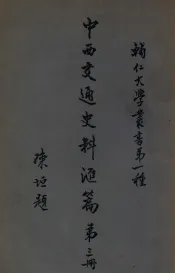 輔仁大學叢書第一種
中西交通史料匯篇第三冊
陳垣題